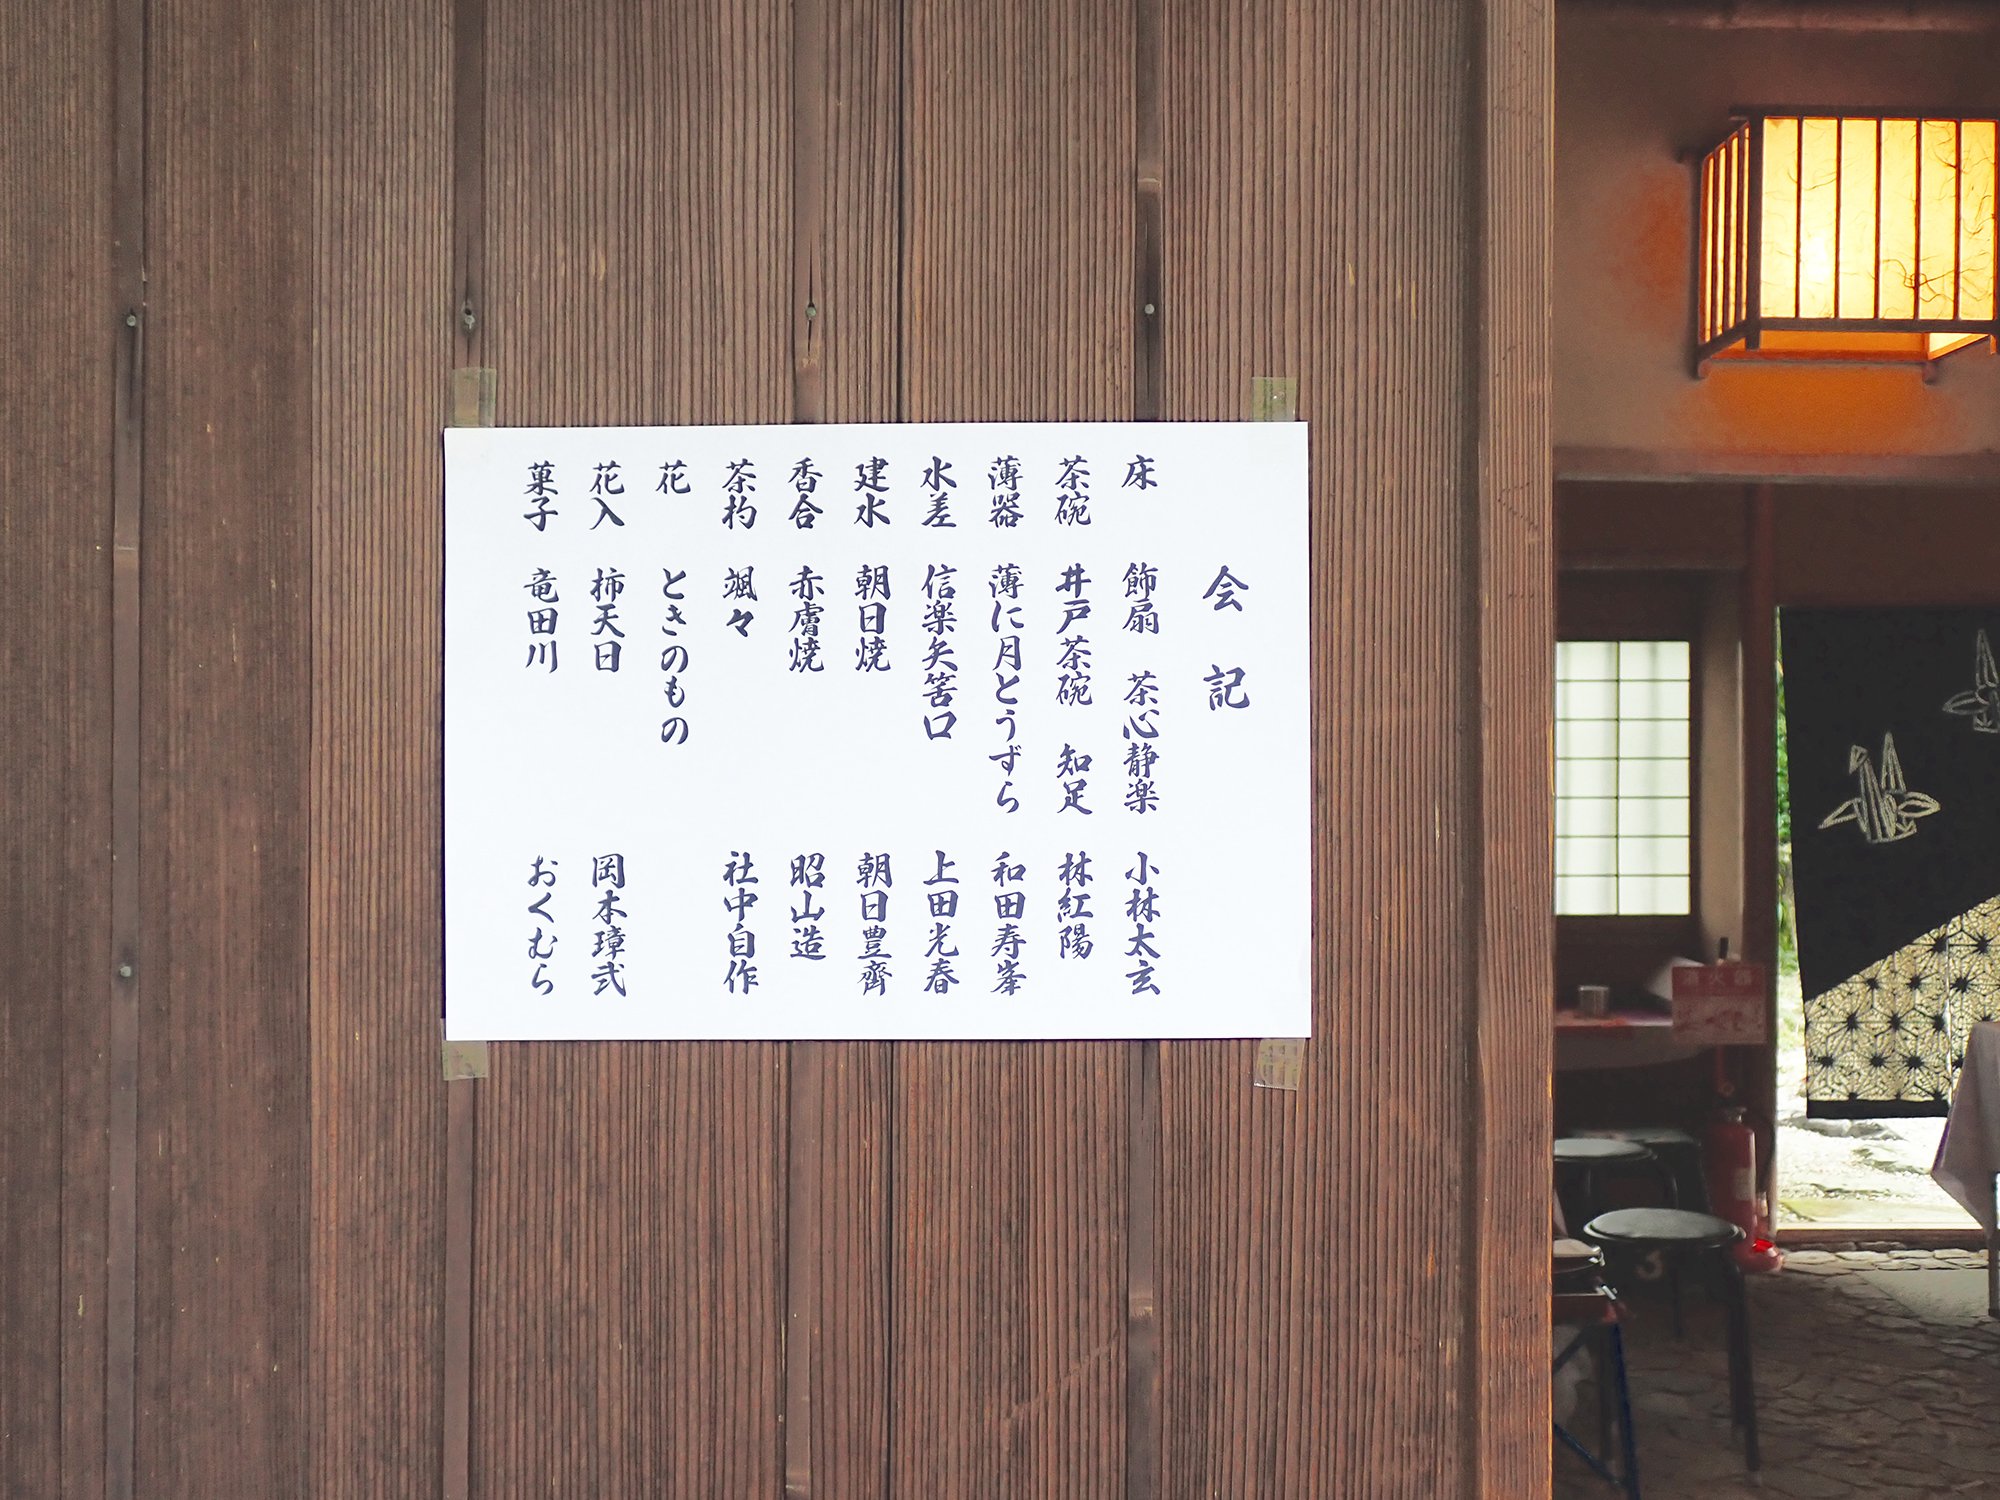 会記
床 飾扇 茶心静楽 小林太玄
茶碗 井戸茶碗 知足 林紅陽
薄器 薄に月とうずら 和田寿峯
水差 信楽矢筈口 上田光春
建水 朝日焼 朝日豊齊
香合 赤膚焼 昭山造
茶杓 颯々 社中自作
花 ときのもの
花入 柿天目 岡本璋弐
菓子 竜田川 おくむら
消火器